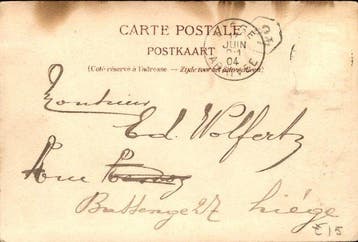 CARTE POSTALE
POSTKAART
(Côté réservé à l'adresse. — Zijde voor het adres alleen)
JUIN
04
Monsieur
Ed. Wolfertz
Rue
Bassenge 27 Liége
£15